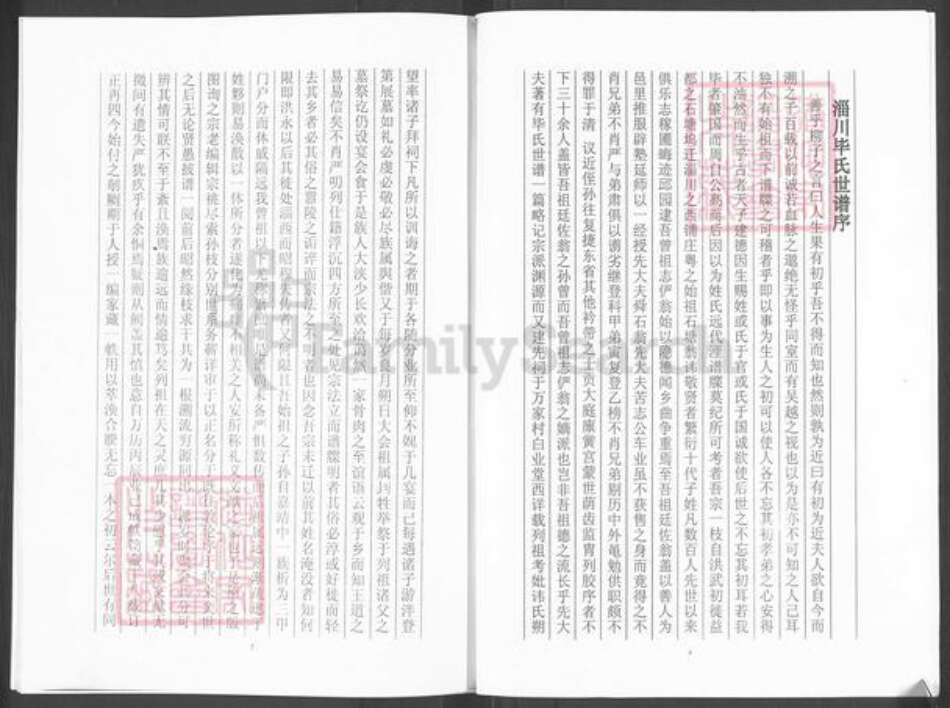 淄川毕氏世谱序
善乎柳子之言曰人生果有初乎吾不得而知也然则孰为近曰有初为近夫人欲自今而
溯之于百载以前诚若血脉之邈绝无怪乎同室而有吴越之视也以为是亦不可知之人已耳
独不有始祖而下谱牒之可稽者乎即以事为生人之初可以使人各不忘其初孝弟之心安得
不浩然而生乎古者天子建德因生赐姓或氏于官或氏于国诚欲使后世之不忘其初耳若我
毕者肇国而周自公高而后因以为姓氏远代湮谱牒莫纪所可考者吾宗一枝自洪武初徙益
都之石塘坞迁淄川之西铺庄粤之始祖石塘翁讳敬贤者繁衍十代子姓凡数百人先世以来
俱乐志稼圃晦迹邱园逮吾曾祖志伊翁始以德德闻乡曲争重焉至吾祖廷佐翁盖以善人为
邑里推服辟塾延师以一经授先大夫舜石翁先大夫苦志公车业虽不获售之身而竟得之不
肖兄弟不肖严与弟肃俱以谫劣继登科甲弟寅复登乙榜不肖兄弟剔历中外黾勉供职颇不
得罪于清 议近侄孙往复捷东省其他衿带之子贡大庭廪黉宫蒙世荫齿监胄列胶序者不
下三十余人盖皆吾祖廷佐翁之孙曾而吾曾祖志伊翁之嫡派也岂非吾祖德之流长乎先大
夫著有毕氏世谱一篇略记宗派渊源而又建先祠于万家村白业堂西详载列祖考妣讳氏朔
望率诸子拜祠下凡所以训诲之者期于各随分业所至仰不媿于几宴而已每遇诸子游泮登
第展墓如礼必虔必敬必尽族属与偕又于每岁良月朔日大会祖属具牲举祭于列祖诸父之
墓祭讫仍设宴会食于是族人大浃少长欢洽蔼蔼一家骨肉之至谊语云观于乡而知王道之
易易信矣不肖严叨列仕籍浮沉四方所至之处见宗法立而谱牒明者其俗必淳或好徙而轻
去其乡者必其俗之嚣陵之诟谇而家法之不明者也因之吾宗未迁以前其姓名淹没者如何
限即洪永以后其徙处淄西而昭穆失传者又何限且吾始祖之子孙自嘉靖中一族析为三甲
门户分而休戚隔远我曾祖以下尤称
姓夥则易涣散以一体所分者遂使 不相关之人安所称礼义
图询之宗老编辑宗祧尽索孙枝分别世系务蕲详审于以正名分于
之后无论贤愚披谱一阅前后昭然缘枝求干共为一根溯流穷源同
辨其情可联不至于紊且涣焉族逾远而情逾笃矣列祖在天之灵庶
徵间有遗失严犹疚乎有余恫焉疑则从阙盖其慎也意自万历丙辰
正再四今始付之剞劂期于人授一编家藏一帙用以萃涣合睽无忘一本之初云尔后世有同